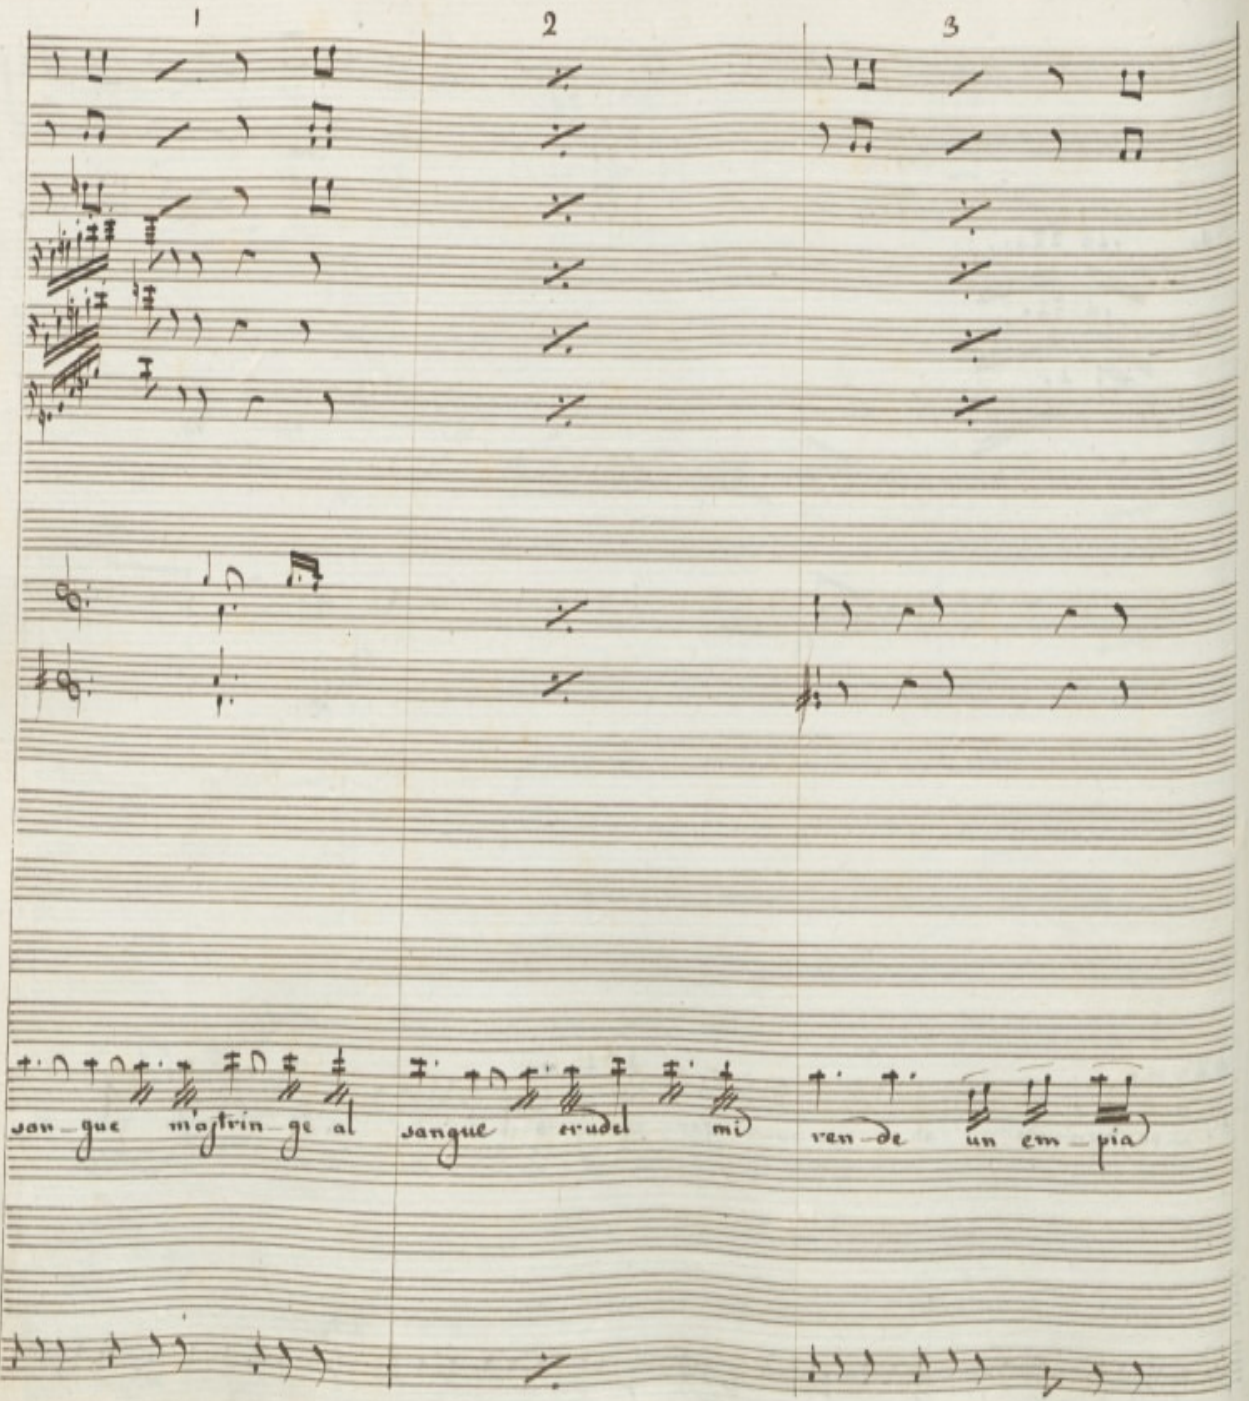 1 2 3
san-gue m'astrin ge al sangue crudel mi ren-de un em-pia